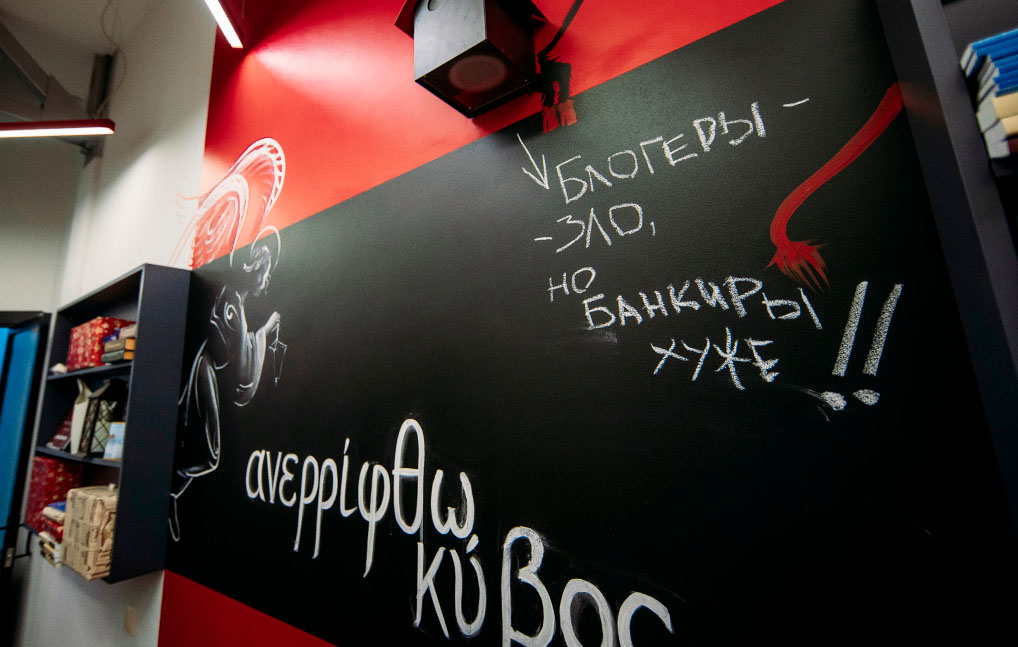 БЛОГЕРЫ -
-ЗЛО,
НО
БАНКИРЫ
ХУЖЕ !!
ανερρίφθω
κύβος